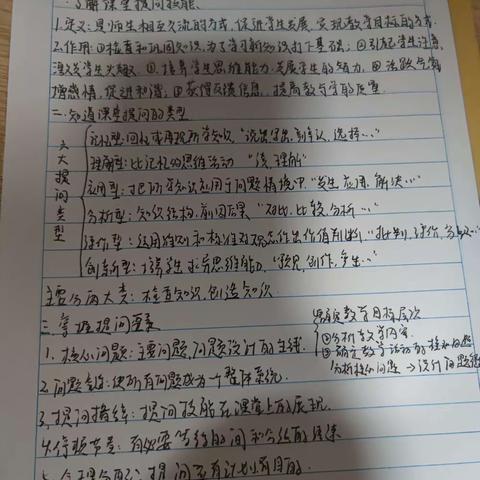 了解课堂提问技能
1.定义:是师生相互交流的方式,促进学生发展,实现教学目标的方式.
2.作用:①检查和巩固知识,为了学习新知识打下基础;②引起学生注意,
激发学生兴趣 ③.培养学生思维能力,发展学生的智力 ④.活跃气氛
增感情,促进和谐.⑤获得反馈信息,提高教与学的质量
二.知道课堂提问的类型
六大提问类型
记忆型:回忆或再现所学知识,“说出,写出,辨认,选择…”
理解型:比记忆的思维活动 “ 理解”
应用型:把所学知识应用于问题情境中,“ 应用,解决…”
分析型:知识结构,前因后果 “对比,比较,分析…”
评价型:运用准则和标准对观念作出价值判断,“批判,评价, …”
创新型:培养 求异思维能力,“预见,创作,产生…”
主要分两大类:检查知识,创造知识
三.掌握提问要素
教学目标层次
①分析教学内容
②确定教学活动的
分析核心问题 → 设计问题链
1.核心问题:主要问题,问题设计的主线.
2.问题 :使所有问题成为一个整体系统.
3.提问措辞:提问技能在课堂上的展现.
4.停顿节奏:有必要等待的时间和 的速
5.合理分配:提问应有计划,有目的.